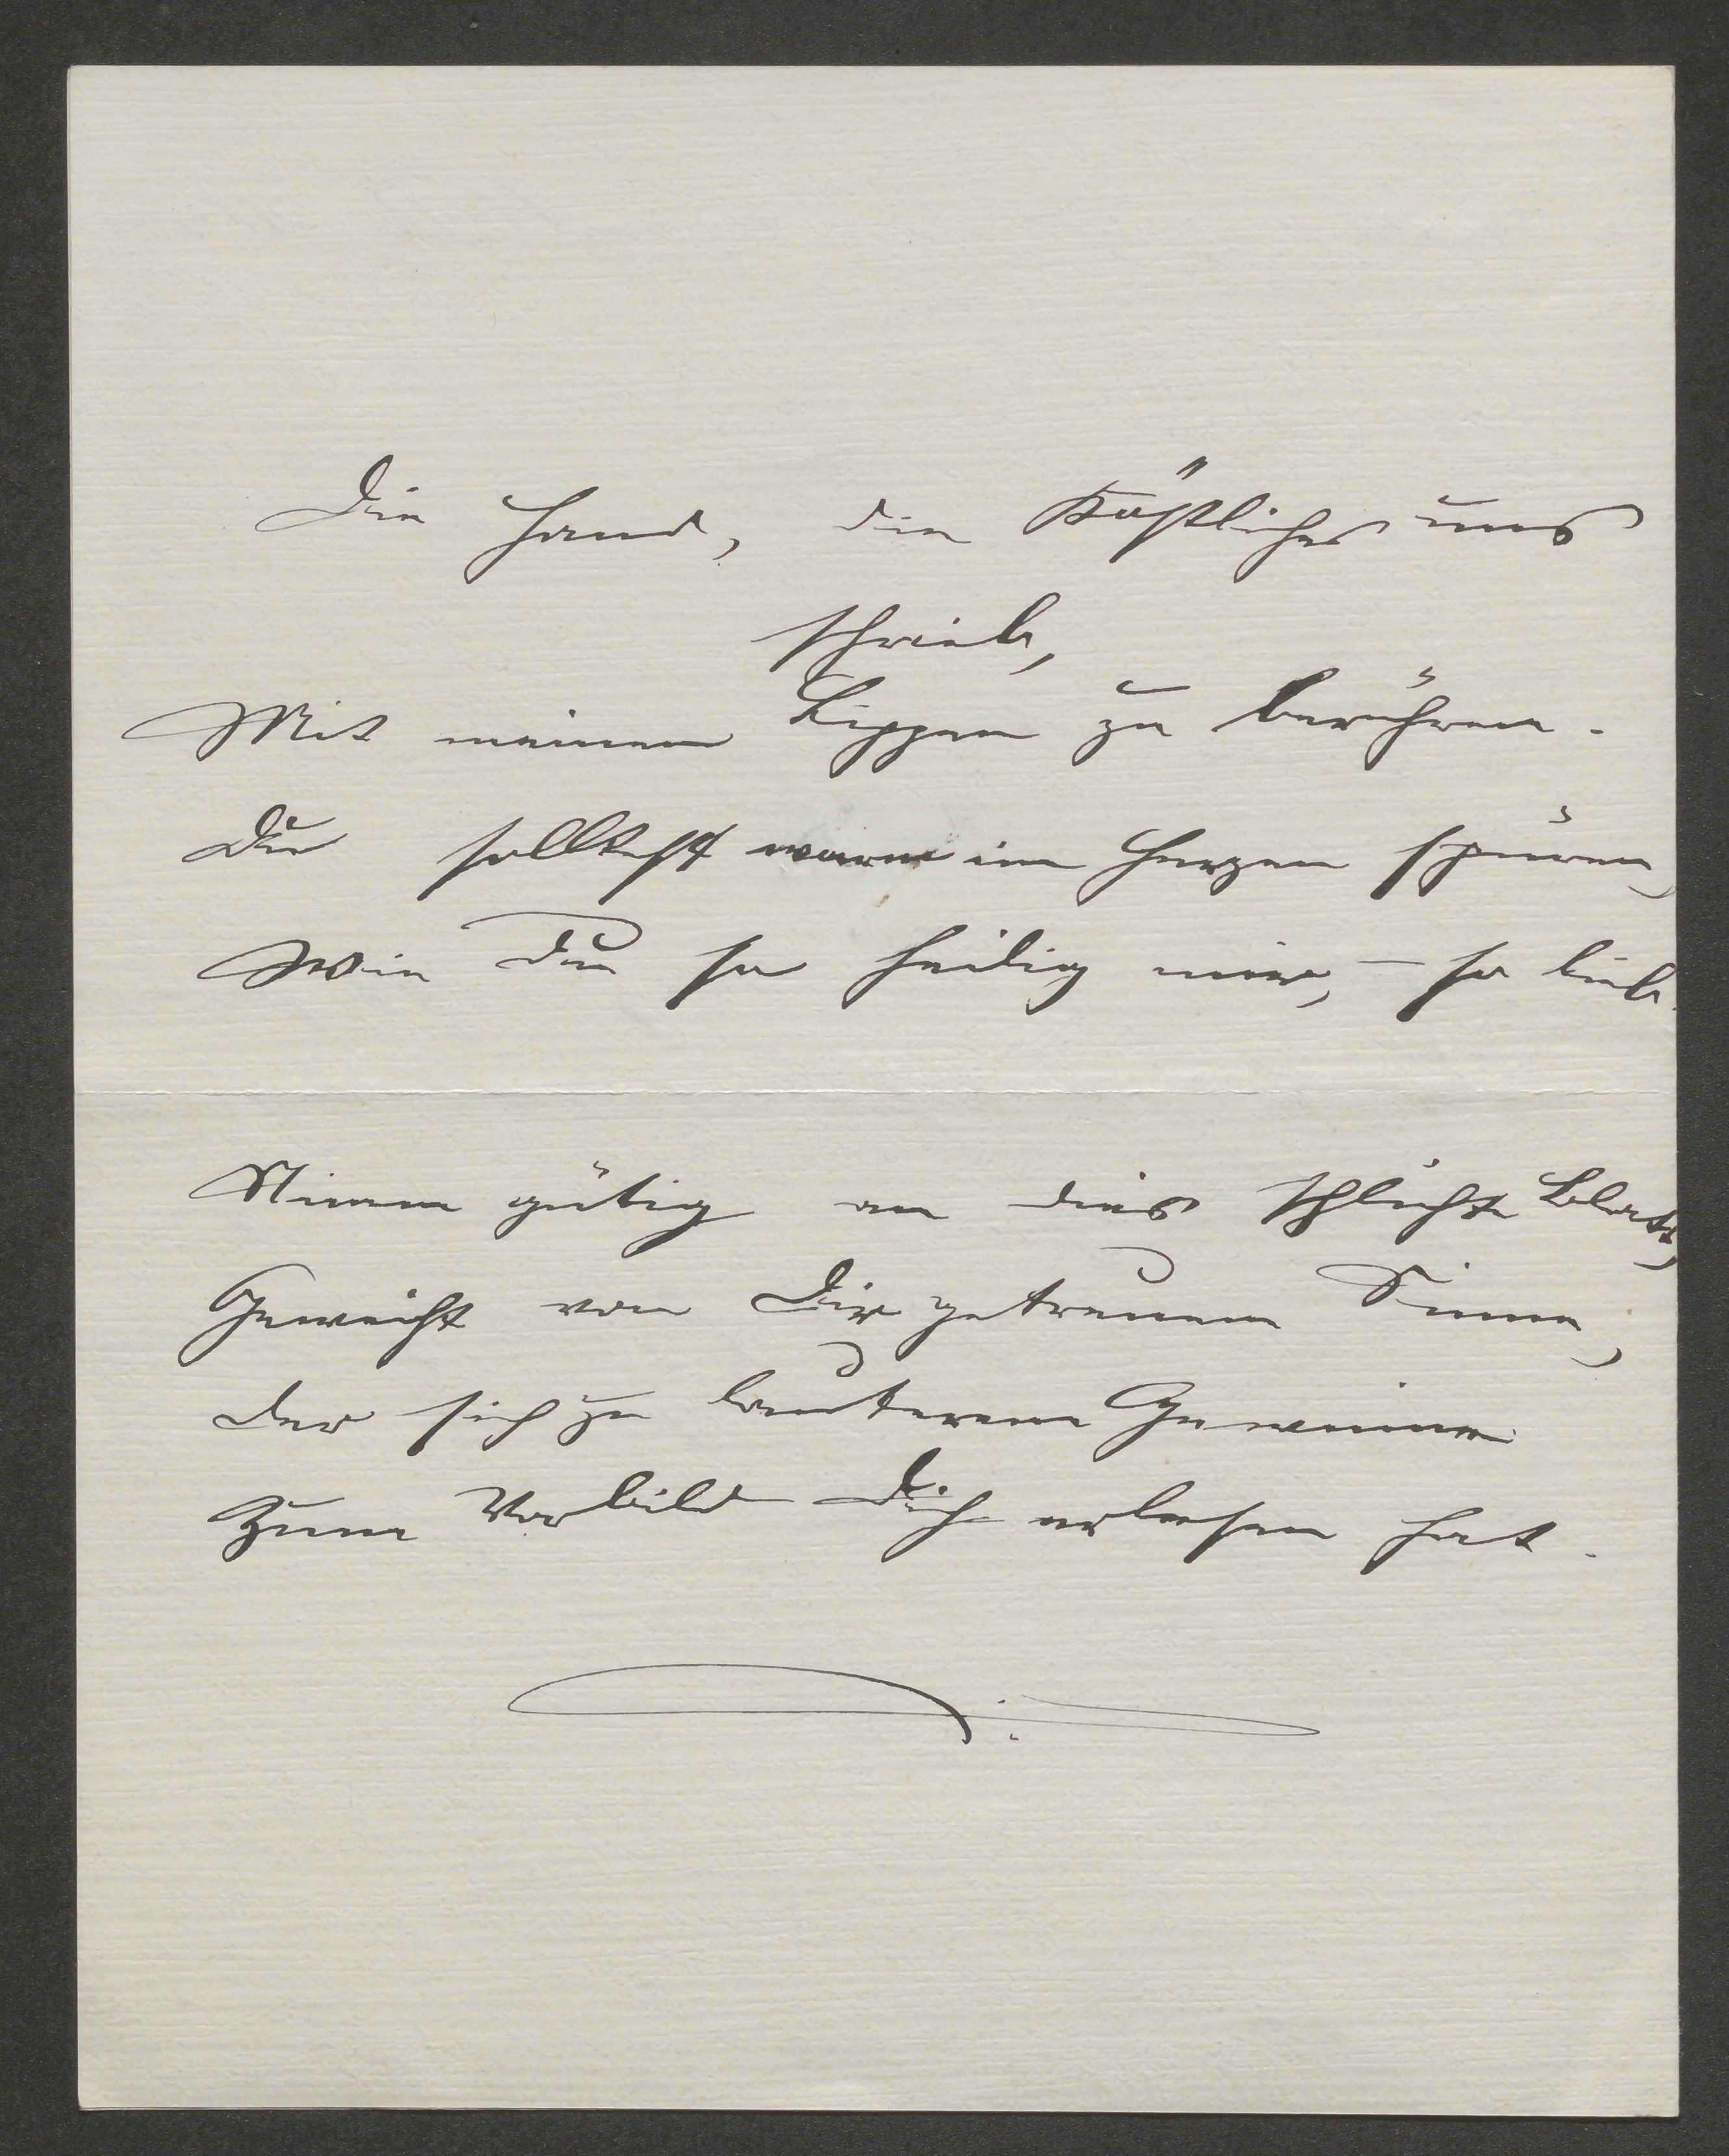 Die Hand, die Köstliches uns
schrieb,
Mit meinen Lippen zu berühren.
Du solltest warm im Herzen spüren,
Wie Du so heilig mir, – so lieb.
Nimm gütig an dies schlichte Blatt,
Geweiht von Dir getreuem Sinne,
Der sich zu lauterem Gewinne
Zum Vorbild Dich erlesen hat.